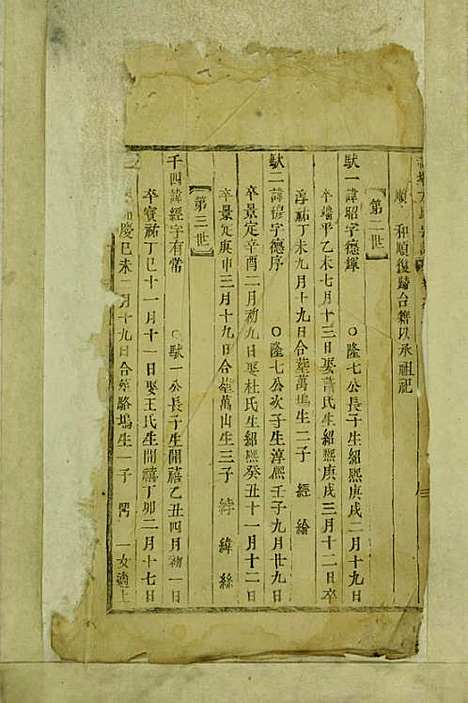 順 和順復歸合籍以承祖祀
【第二世】
馱一諱昭字德輝 ○隆七公長子生紹熙庚戌二月十九日
卒端平乙未七月十三日娶蕭氏生紹熙庚戌三月十二日卒
淳祐丁未九月十九日合葬萬塢生二子 經 綸
馱二諱 字德序 ○隆七公次子生淳熙壬子九月廿九日
卒景定辛酉二月初九日娶杜氏生紹熙癸丑十一月十二日
卒景定庚申三月十九日合葬萬山生三子 緯 絲
【第三世】
千四諱經字有常 ○馱一公長子生開禧乙丑四月初一日
卒寶祐丁巳十一月十一日娶王氏生開禧丁卯二月十七日
慶巳未二月十九日合葬駱塢生一子 一女適上